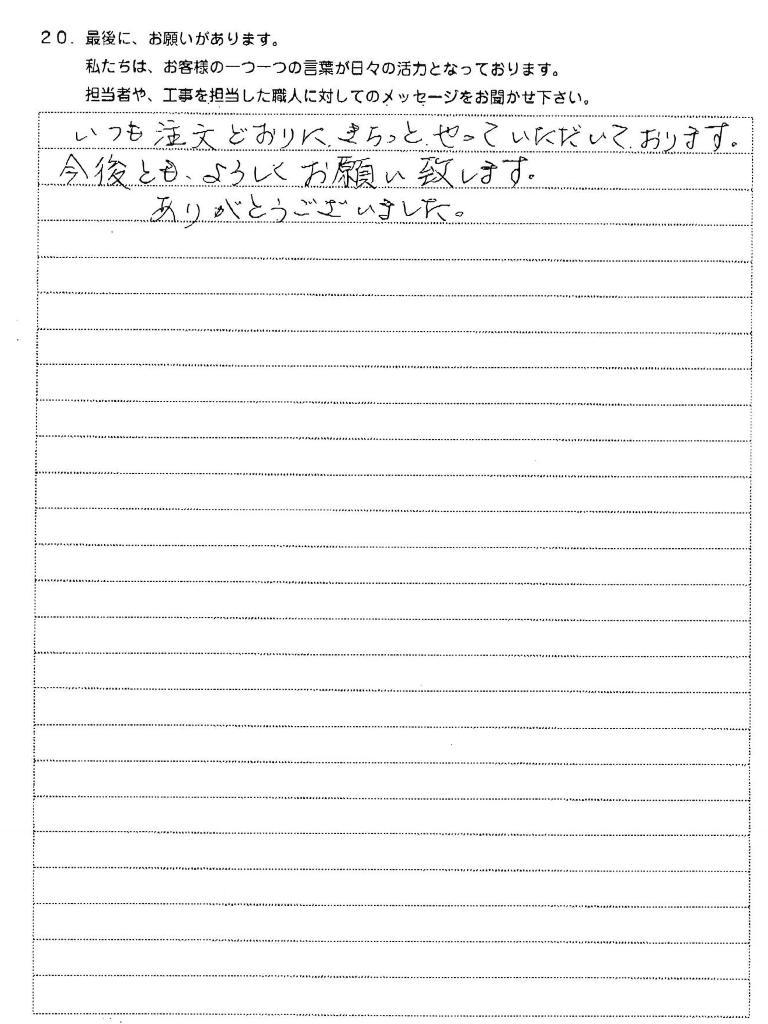 20. 最後に、お願いがあります。
私たちは、お客様の一つ一つの言葉が日々の活力となっております。
担当者や、工事を担当した職人に対してのメッセージをお聞かせ下さい。
いつも注文どおりに、きちっと、やっていただいて、おります。
今後とも、よろしくお願い致します。
ありがとうございました。